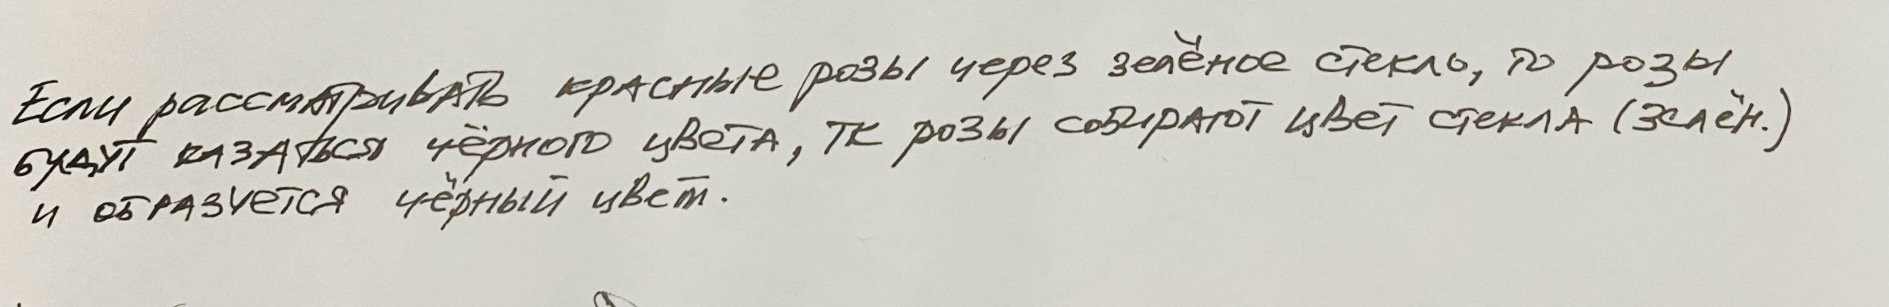 Если рассматривать красные розы через зелёное стекло, то розы
будут казаться чёрного цвета, тк розы собирают цвет стекла (зелён.)
и образуется чёрный цвет.